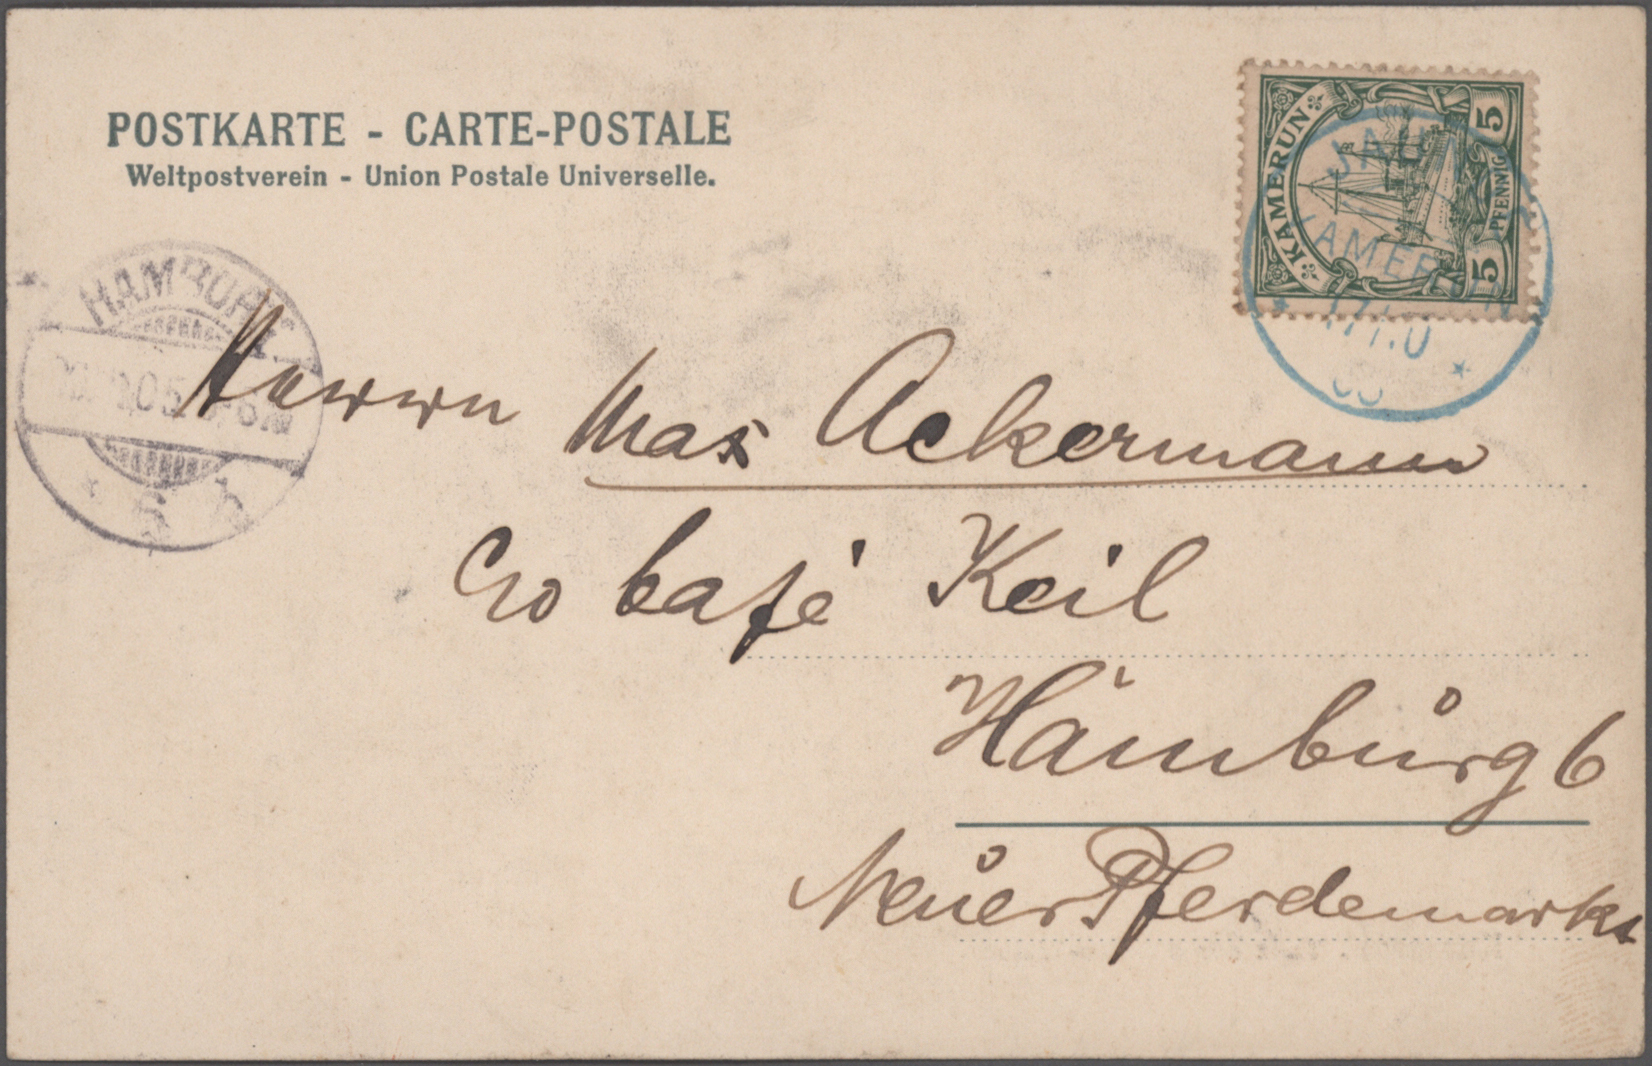 POSTKARTE - CARTE-POSTALE
Weltpostverein - Union Postale Universelle.
KAMERUN
5 PFENNIG 5
KAMERUN
HAMBURG
Herrn Max Ackermann
Café Keil
Hamburg 6
Neuer Pferdemarkt